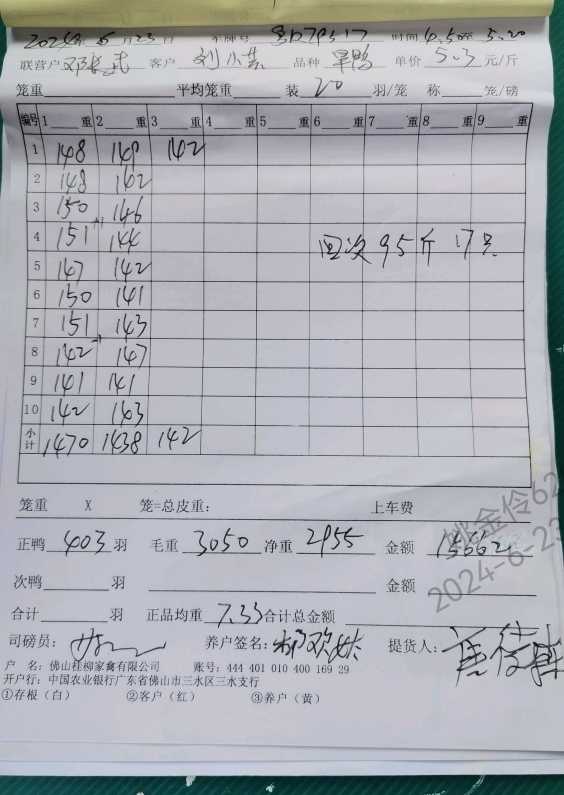 2024年 6月23日 车牌号 粤D79317 时间 4.50至5.20
联营户 邓 客户 刘小 品种 旱鸭 单价 5.3 元/斤
笼重 平均笼重 装 20 羽/笼 称 笼/磅
编号 1 重 2 重 3 重 4 重 5 重 6 重 7 重 8 重 9 重
1 148 149 142
2 148 142
3 150 146
4 151 144 回次95斤 17只
5 147 142
6 150 141
7 151 143
8 142 147
9 141 141
10 142 143
小计 1470 1438 142
笼重 X 笼=总皮重: 上车费
正鸭 403 羽 毛重 3050 净重 2955 金额 15662
次鸭 羽 金额
合计 羽 正品均重 7.33 合计总金额
司磅员: 养户签名: 提货人:
户 名: 佛山桂柳家禽有限公司 账号: 444 401 010 400 169 29
开户行: 中国农业银行广东省佛山市三水区三水支行
①存根（白） ②客户（红） ③养户（黄）
姚金伶62
2024-6-23